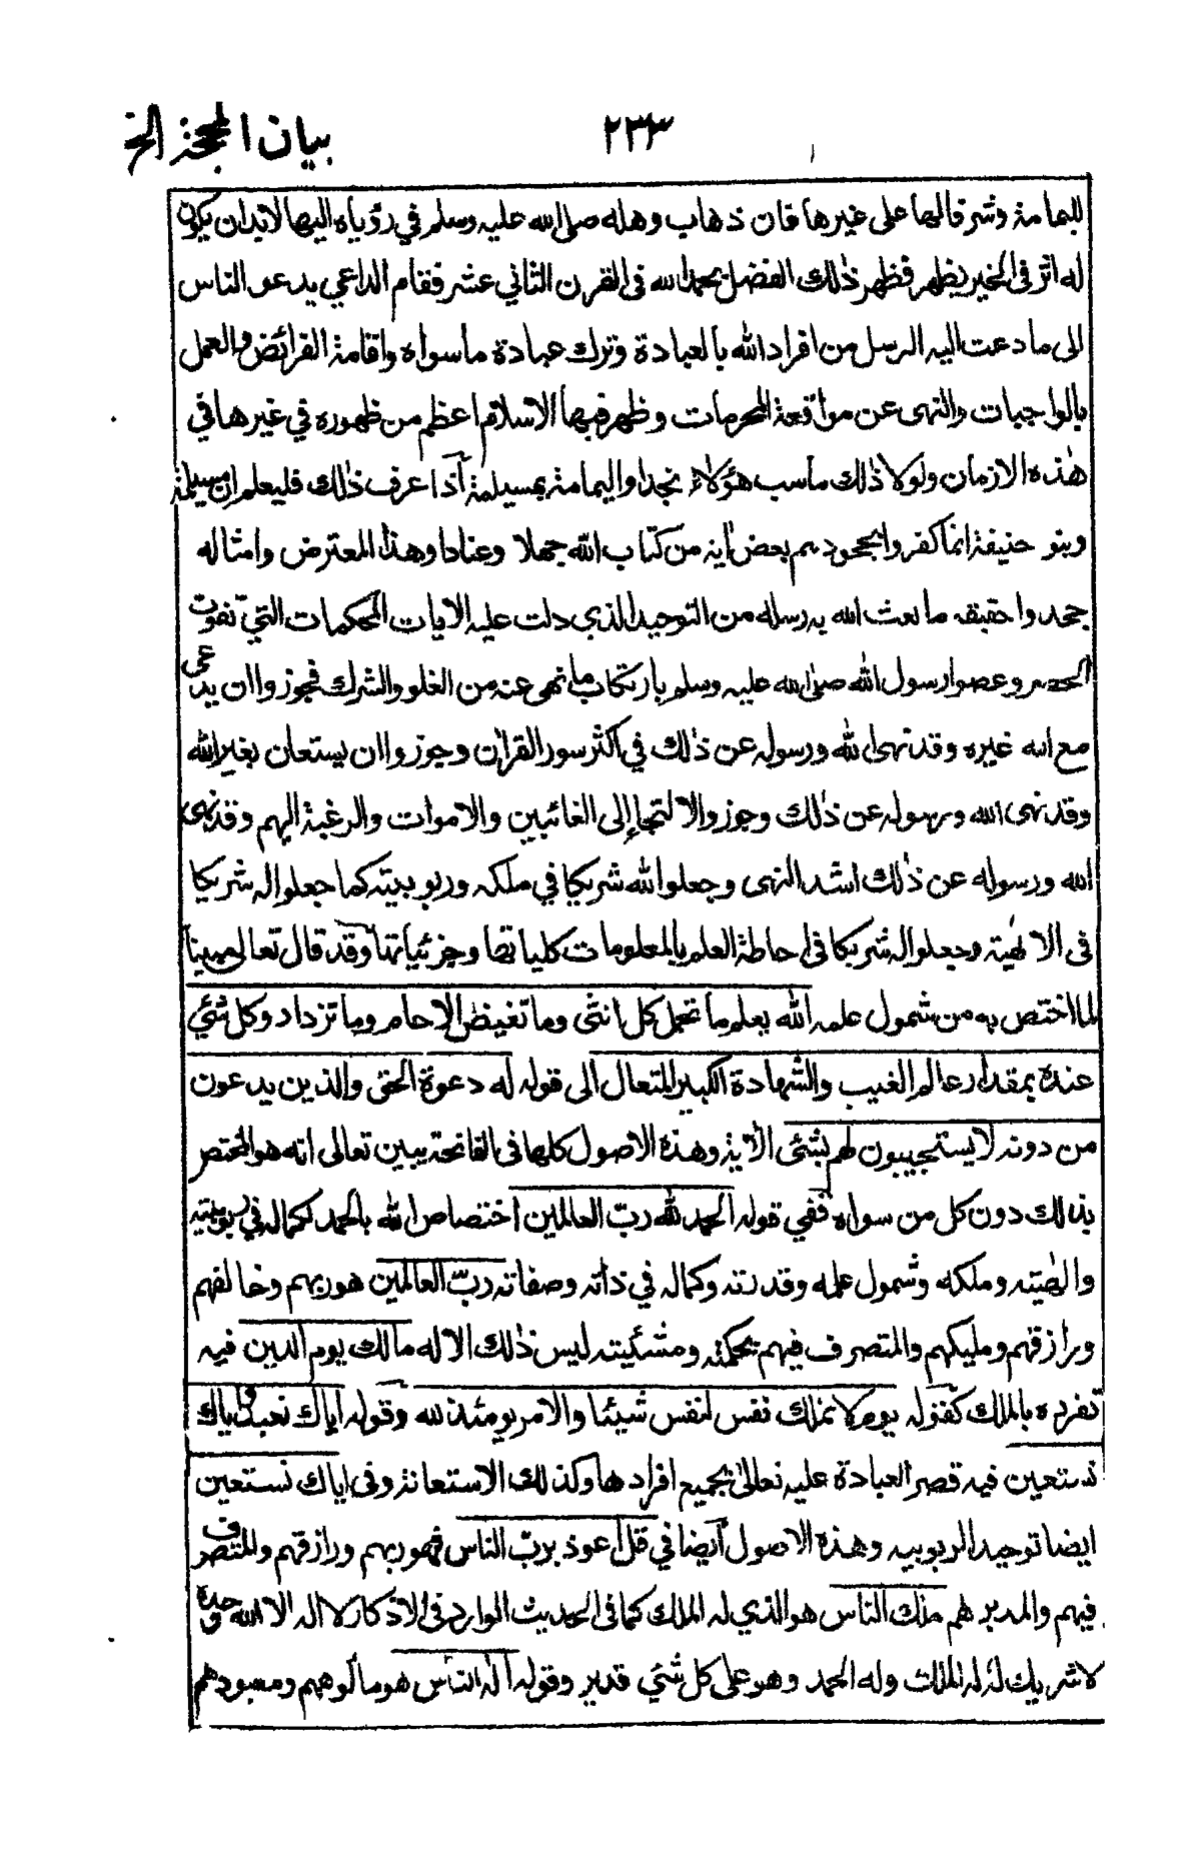 بيان المحجة الخ
٢٣٣
لليمامة وشرفا لها على غيرها فان ذهاب وهله صلى الله عليه وسلم في رؤياه اليها لابد ان يكون
له اثر فى الخير يظهر فظهر ذٰلك الفضل بحمد الله فى القرن الثاني عشر فقام الداعي يدعو الناس
الى ما دعت اليه الرسل من افراد الله بالعبادة وترك عبادة ما سواه واقامة الفرائض والعمل
بالواجبات والنهى عن مواقعة المحرمات وظهر فيها الاسلام اعظم من ظهوره في غيرها في
هٰذه الازمان ولولا ذٰلك ما سب هؤلاء نجدا واليمامة بمسيلمة اذا عرف ذٰلك فليعلم ان مسيلمة
وبنو حنيفة انما كفروا بجحودهم بعض اٰية من كتاب الله جهلا وعنادا وهذا المعترض وامثاله
جحدوا حقيقة ما بعث الله به رسله من التوحيد الذي دلت عليه الايات المحكمات التي تفوت
الحصر وعصوا رسول الله صلى الله عليه وسلم بارتكاب ما نهى عنه من الغلو والشرك فجوزوا ان يدعى
مع الله غيره وقد نهى الله ورسوله عن ذٰلك في اكثر سور القراٰن وجوزوا ان يستعان بغير الله
وقد نهى الله ورسوله عن ذٰلك وجوزوا الالتجاء إلى الغائبين والاموات والرغبة اليهم وقد نهى
الله ورسوله عن ذٰلك اشد النهى وجعلوا لله شريكا في ملكه وربوبيته كما جعلوا له شريكا
فى الالٰهية وجعلوا له شريكا فى احاطة العلم بالمعلومات كلياتها وجزئياتها وقد قال تعالى مبينا
لما اختص به من شمول علمه الله يعلم ما تحمل كل انثٰى وما تغيض الارحام وما تزداد وكل شئي
عنده بمقدار عالم الغيب والشهادة الكبير المتعال الى قوله له دعوة الحق والذين يدعون
من دونه لا يستجيبون لهم بشئى الاٰية وهذه الاصول كلها فى الفاتحة يبين تعالى انه هو المختص
بذالك دون كل من سواه ففي قوله الحمد لله ربّ العالمين اختصاص الله بالحمد لكماله في ربوبيته
والٰهيته وملكه وشمول علمه وقدرته وكماله في ذاته وصفاته ربّ العالمين هو ربهم وخالقهم
ورازقهم ومليكهم والمتصرف فيهم بحكمته ومشئيته ليس ذٰلك الا له مالك يوم الدين فيه
تفرده بالملك كقوله يوم لا تملك نفس لنفس شيئا والامر يومئذ لله وقوله اياك نعبد واياك
نستعين فيه قصر العبادة عليه تعالىٰ بجميع افرادها وكذلك الاستعانة وفى اياك نستعين
ايضا توحيد الربوبيه وهذه الاصول أيضا في قل اعوذ بربّ الناس فهو ربهم ورازقهم والمتصرف
فيهم والمدبر لهم ملك الناس هو الذي له الملك كما فى الحديث الوارد فى الاذكار لا اله الا الله وحده
لا شريك له له الملك وله الحمد وهو على كل شئي قدير وقوله اله الناس هو مألوههم ومعبودهم